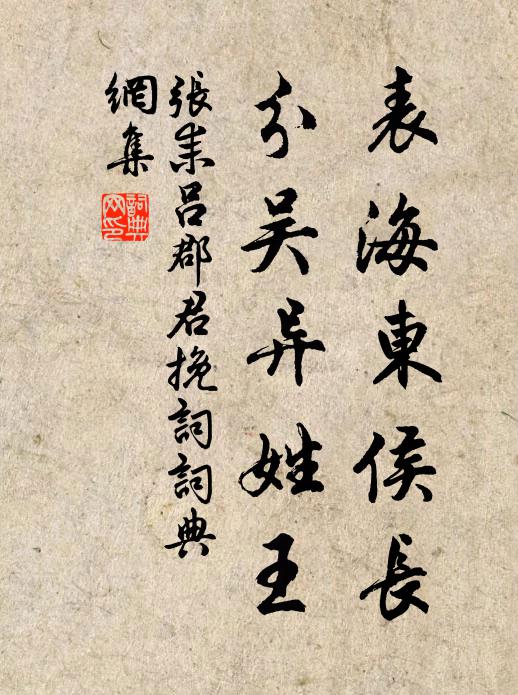 表海東侯長
分吴异姓王
張耒吕郡君挽詞詞典
網集
詞典
网印